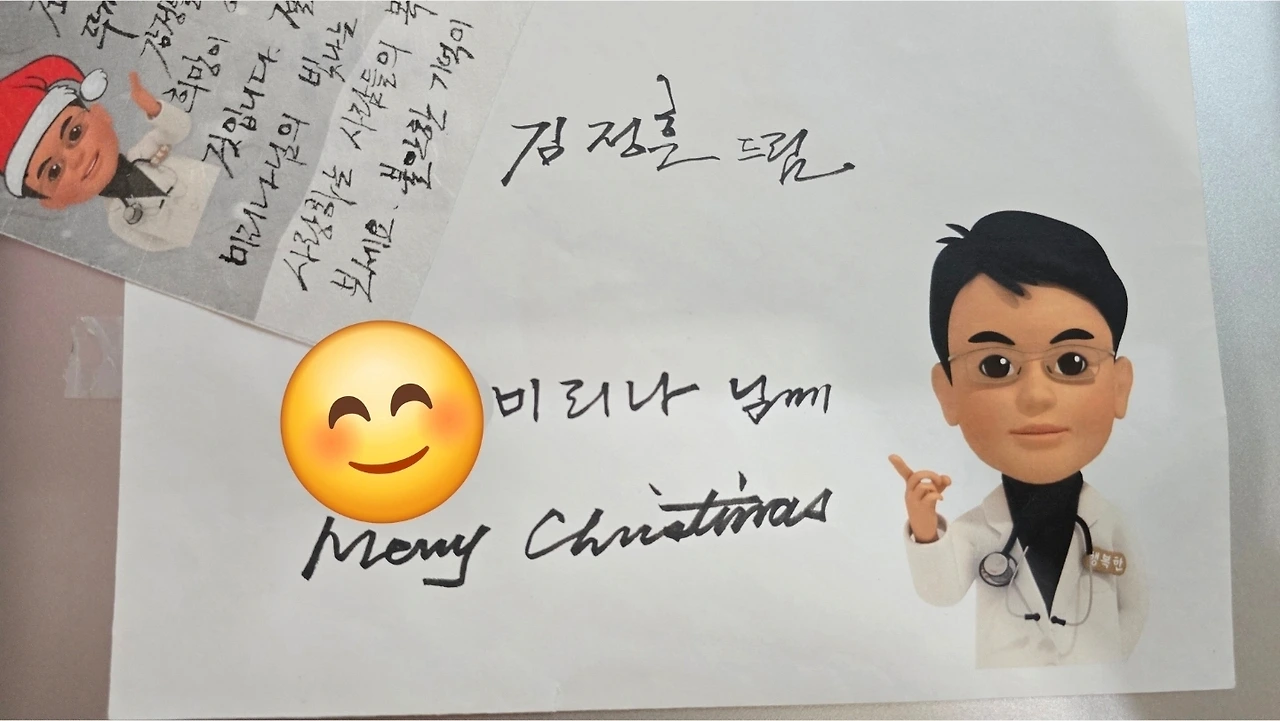 희망이
것입니다.
미리나님의 빛나는
사랑하는 사람들의
보세요. 불안한 기억이
김정훈 드림
미리나 님께
Merry Christmas
행복한